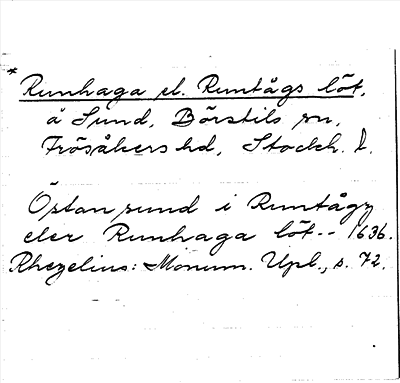 * Runhaga el. Runtågs löt,
å Sund, Börstils sn,
Frösåkers hd, Stockh. l.
Östansund i Runtågz
eler Runhaga löt -- 1636.
Rhezelius: Monum. Upl., s. 72.